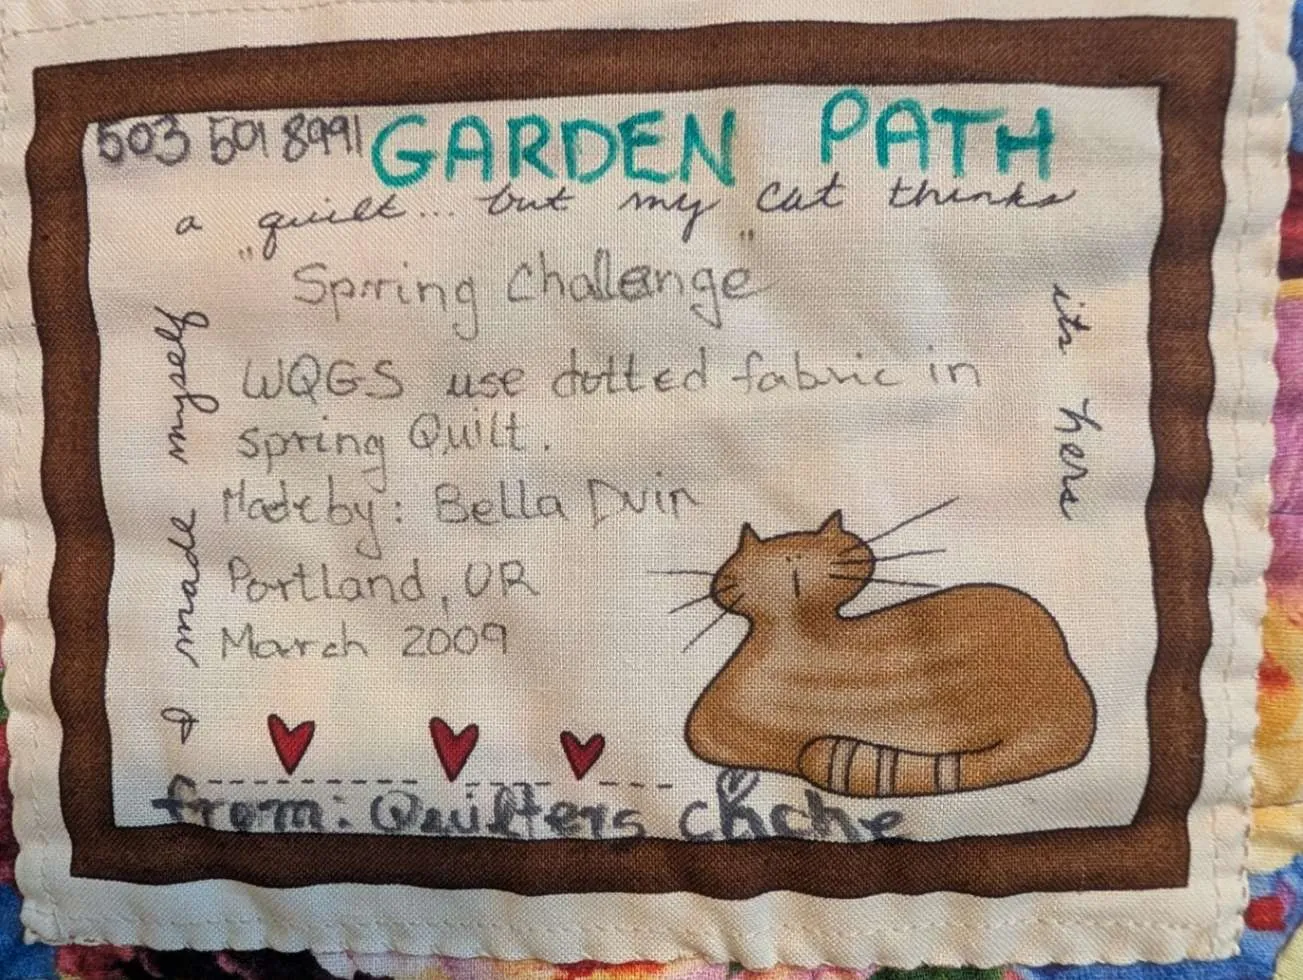 503 501 8991 GARDEN PATH
I made myself
a "quilt"... but my cat thinks
its hers
Spring Challenge
WQGS use dotted fabric in
spring Quilt.
Made by: Bella Dvin
Portland, OR
March 2009
from: Quilters cache